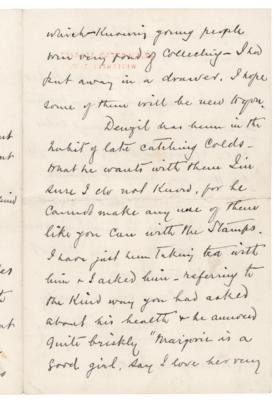 which - knowing young people
were very fond of collecting - I had
put away in a drawer. I hope
some of them will be new to you.
Denzil has been in the
habit of late catching colds -
what he wants with them I'm
sure I do not know, for he
cannot make any use of them
like you can with the stamps.
I have just been taking tea with
him & I asked him - referring to
the kind way you had asked
about his health & he answered
quite briskly "Marjorie is a
good girl, say I love her very